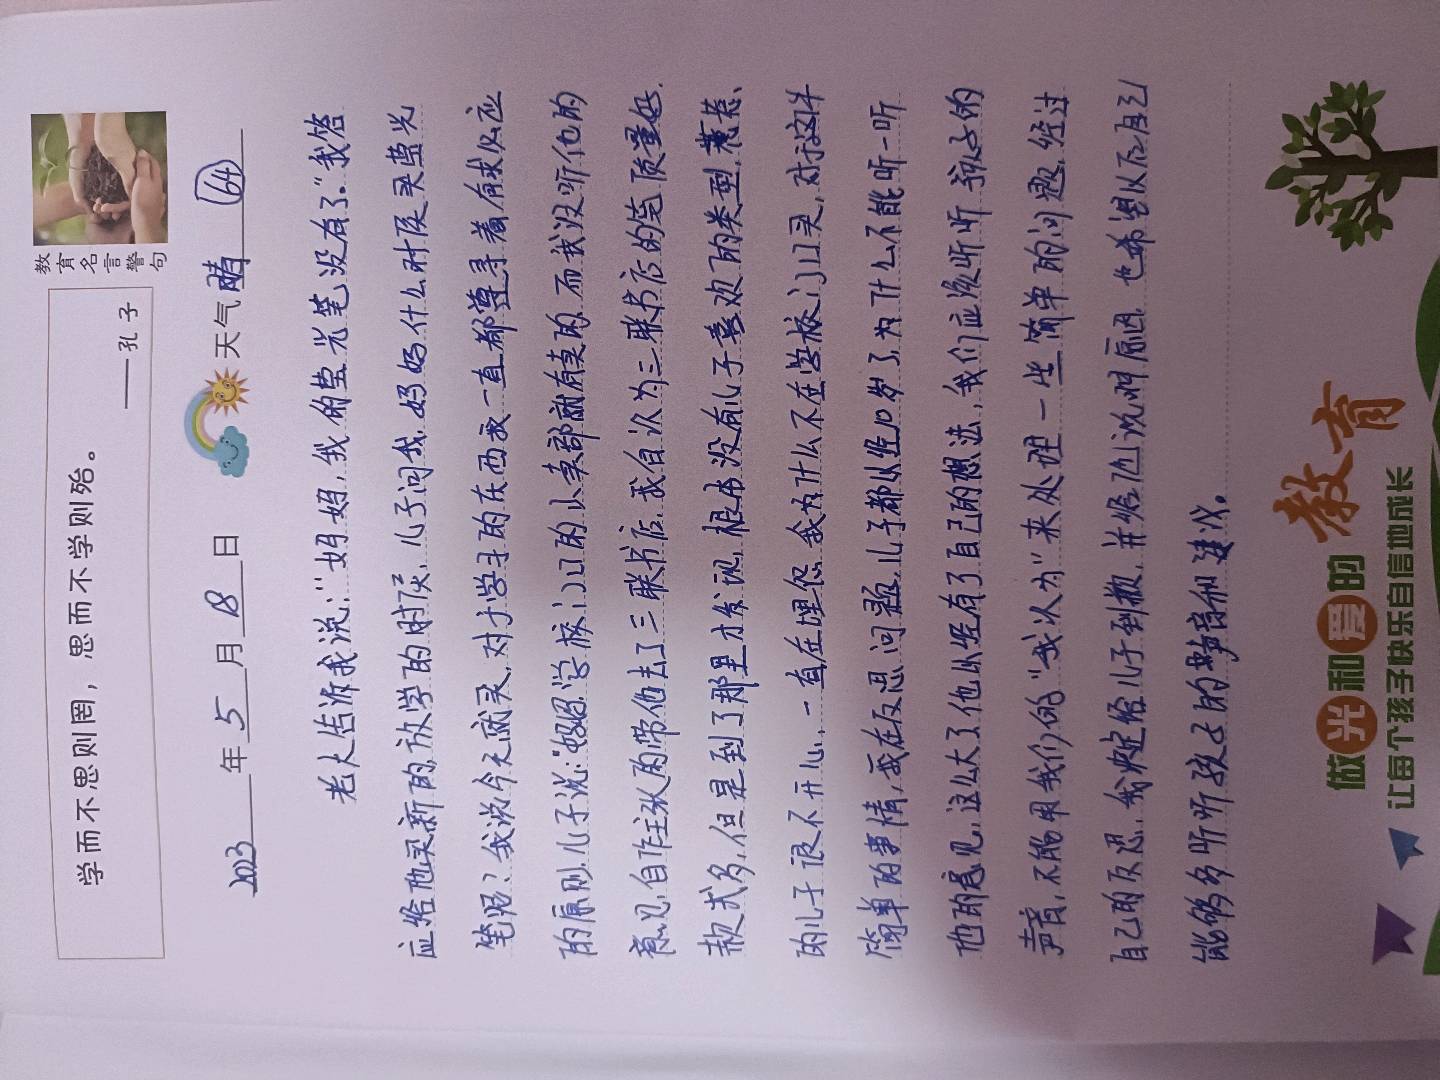 教育名言警句
学而不思则罔，思而不学则殆。
——孔子
2023年5月18日 天气 晴 64
老大告诉我说：“妈妈，我的莹光笔没有了。”我答
应给他买新的，放学的时候，儿子问我，妈妈什么时候买莹光
笔呢？我说今天就买，对于学习的东西我一直都尊寻着有求必应
的原则，儿子说：“妈妈学校门口的小卖部就有卖的，而我没听他的
意见，自作主张的带他去了三联书店，我自认为三联书店的笔质量好，
款式多，但是到了那里才发现，根本没有儿子喜欢的类型，
的儿子很不开心，一直在埋怨我为什么不在学校门口买，对于这件
简单的事情，我在反思问题，儿子都从经10岁了，为什么不能听一听
他的意见，这么大了他从经有了自己的想法，我们应该听听孩子的
声音，不能用我们的“我认为”来处理一些简单的问题，经过
自己的反思，我决定给儿子到歉，并给他说明原因，也希望以后自己
能够多听听孩子的声音和建议。
做光和爱的教育
让每个孩子快乐自信地成长